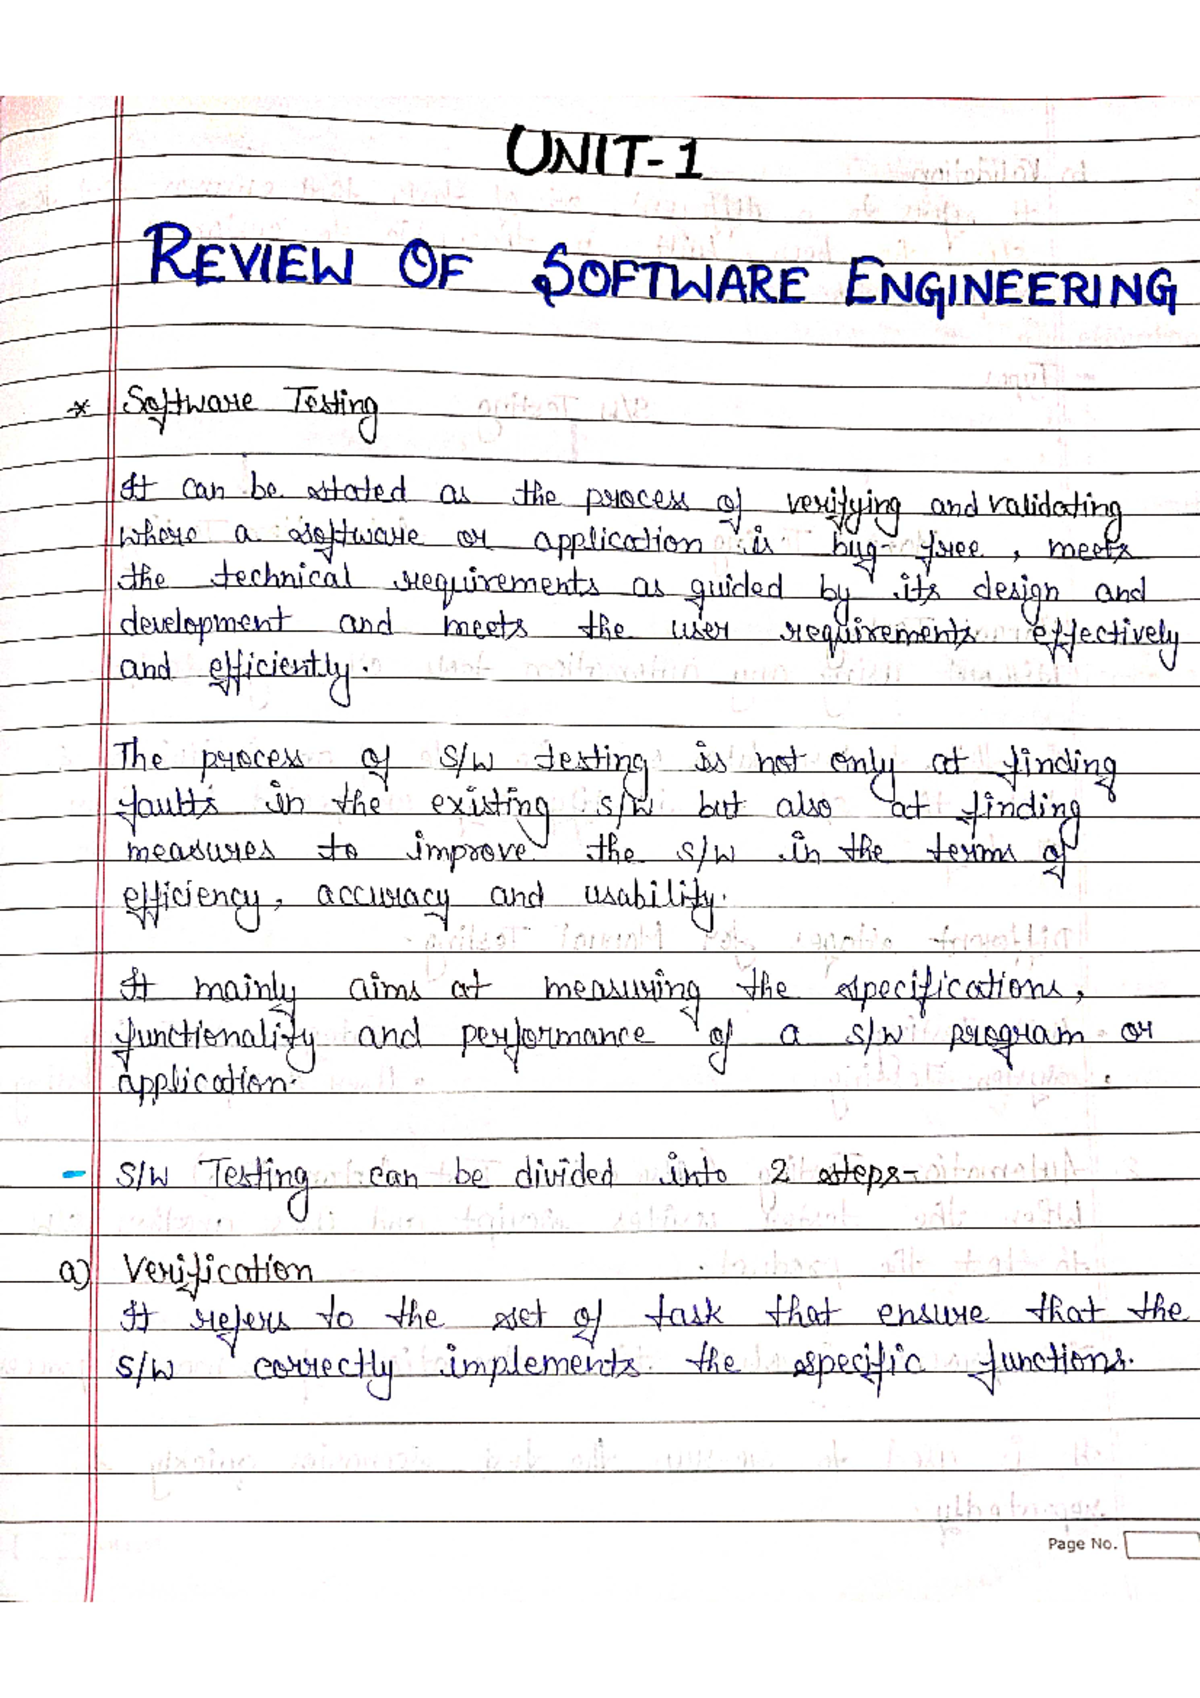 UNIT-1
REVIEW OF SOFTWARE ENGINEERING
* Software Testing
It can be stated as the process of verifying and validating
where a software or application is bug-free, meets
the technical requirements as guided by its design and
development and meets the user requirements effectively
and efficiently.
The process of S/W testing is not only at finding
faults in the existing s/w but also at finding
measures to improve the s/w in the terms of
efficiency, accuracy and usability.
It mainly aims at measuring the specifications,
functionality and performance of a s/w program or
application.
- S/W Testing can be divided into 2 steps-
a) Verification
It refers to the set of task that ensure that the
S/W correctly implements the specific functions.
Page No.